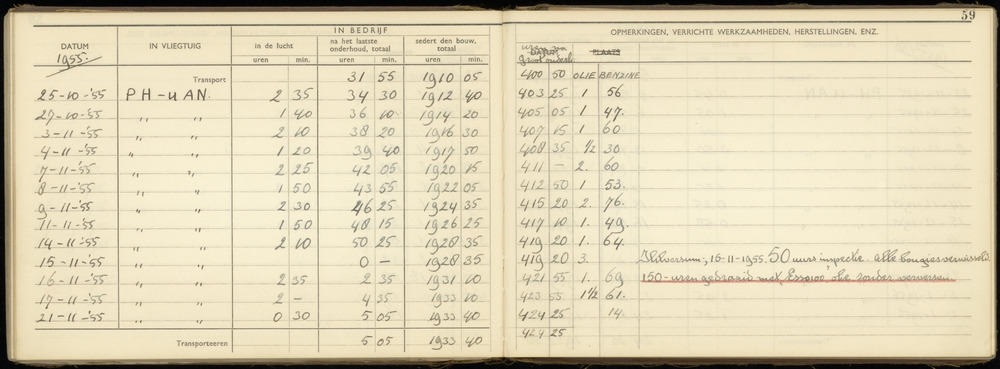 59
IN BEDRIJF
DATUM IN VLIEGTUIG in de lucht na het laatste onderhoud, totaal sedert den bouw, totaal OPMERKINGEN, VERRICHTE WERKZAAMHEDEN, HERSTELLINGEN, ENZ.
1955. uren min. uren min. uren min. DATUM PLAATS
Transport 31 55 1910 05 400 50 OLIE BENZINE
25-10-'55 PH-UAN. 2 35 34 30 1912 40 403 25 1 56
27-10-'55 ,, ,, 1 40 36 10 1914 20 405 05 1 47.
3-11-'55 ,, ,, 2 10 38 20 1916 30 407 15 1 60
4-11-'55 ,, ,, 1 20 39 40 1917 50 408 35 1/2 30
7-11-'55 ,, ,, 2 25 42 05 1920 15 411 - 2. 60
8-11-'55 ,, ,, 1 50 43 55 1922 05 412 50 1 53.
9-11-'55 ,, ,, 2 30 46 25 1924 35 415 20 2. 76.
11-11-'55 ,, ,, 1 50 48 15 1926 25 417 10 1. 49.
14-11-'55 ,, ,, 2 10 50 25 1928 35 419 20 1. 64.
15-11-'55 ,, ,, 0 - 1928 35 419 20 3. Hilversum, 15-11-1955. 50 uurs inspectie. alle bougies verwisseld.
16-11-'55 ,, ,, 2 35 2 35 1931 10 421 55 1. 69 150-uren gedraaid met Esso 100 olie zonder verversen.
17-11-'55 ,, ,, 2 - 4 35 1933 10 423 55 1 1/2 61.
21-11-'55 ,, ,, 0 30 5 05 1933 40 424 25 14.
Transporteeren 5 05 1933 40 424 25